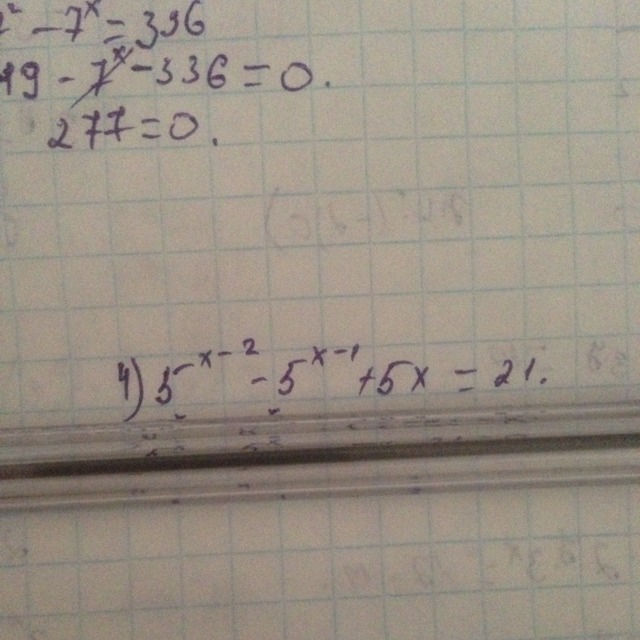 7² - 7ˣ = 336
49 - 7ˣ - 336 = 0.
277 = 0.
4) 5ˣ⁻² - 5ˣ⁻¹ + 5x = 21.